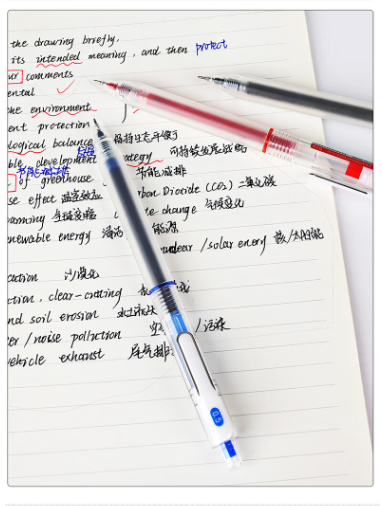 the drawing briefly.
its intended meaning, and then protect
our comments
ental
he environment
ent protection
logical balance 保持生态平衡
ble development rategy 可持续发展战略
of greenhouse 节能减排
se effect 温室效应 rbon Dioxide (CO₂) 二氧化碳
arming 全球变暖 te change 气候变化
newable energy 能源
/ solar energy
cation 沙漠化
ction, clear-cutting
nd soil erosion 水土流失
er / noise pollution / 污染
vehicle exhaust 尾气排
0.5